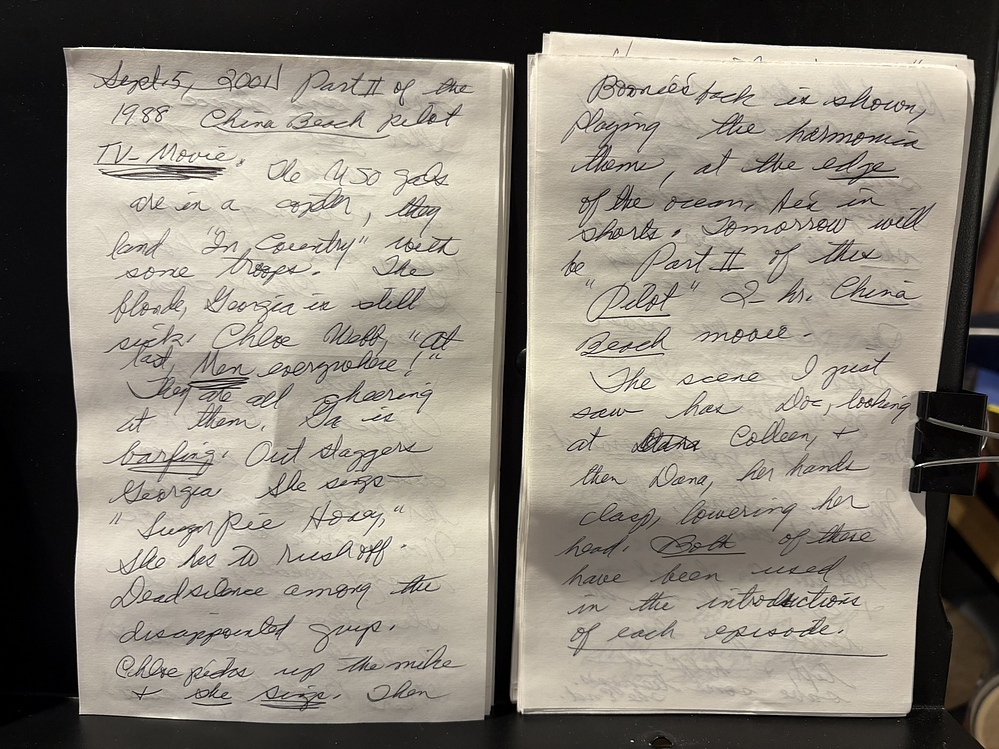 Sept. 5, 2001 Part II of the
1988 China Beach pilot
TV-Movie. The USO gals
are in a copter, they
land "In Country" with
some troops. The
blonde, Georgia is still
sick. Chloe Webb, "at
last, Men everywhere!"
They are all cheering
at them. Ga is
barfing. Out staggers
Georgia She sings
"Sugar Pie Honey,"
She has to rush off.
Dead silence among the
disappointed guys.
Chloe picks up the mike
+ she sings. Then
Boonie's back is shown,
playing the harmonica
theme, at the edge
of the ocean, he's in
shorts. Tomorrow will
be "Part II of this
"Pilot" 2-hr. China
Beach movie.
The scene I just
saw has Doc, looking
at Colleen, +
then Dana, her hands
clasp, lowering her
head. Both of these
have been used
in the introductions
of each episode.